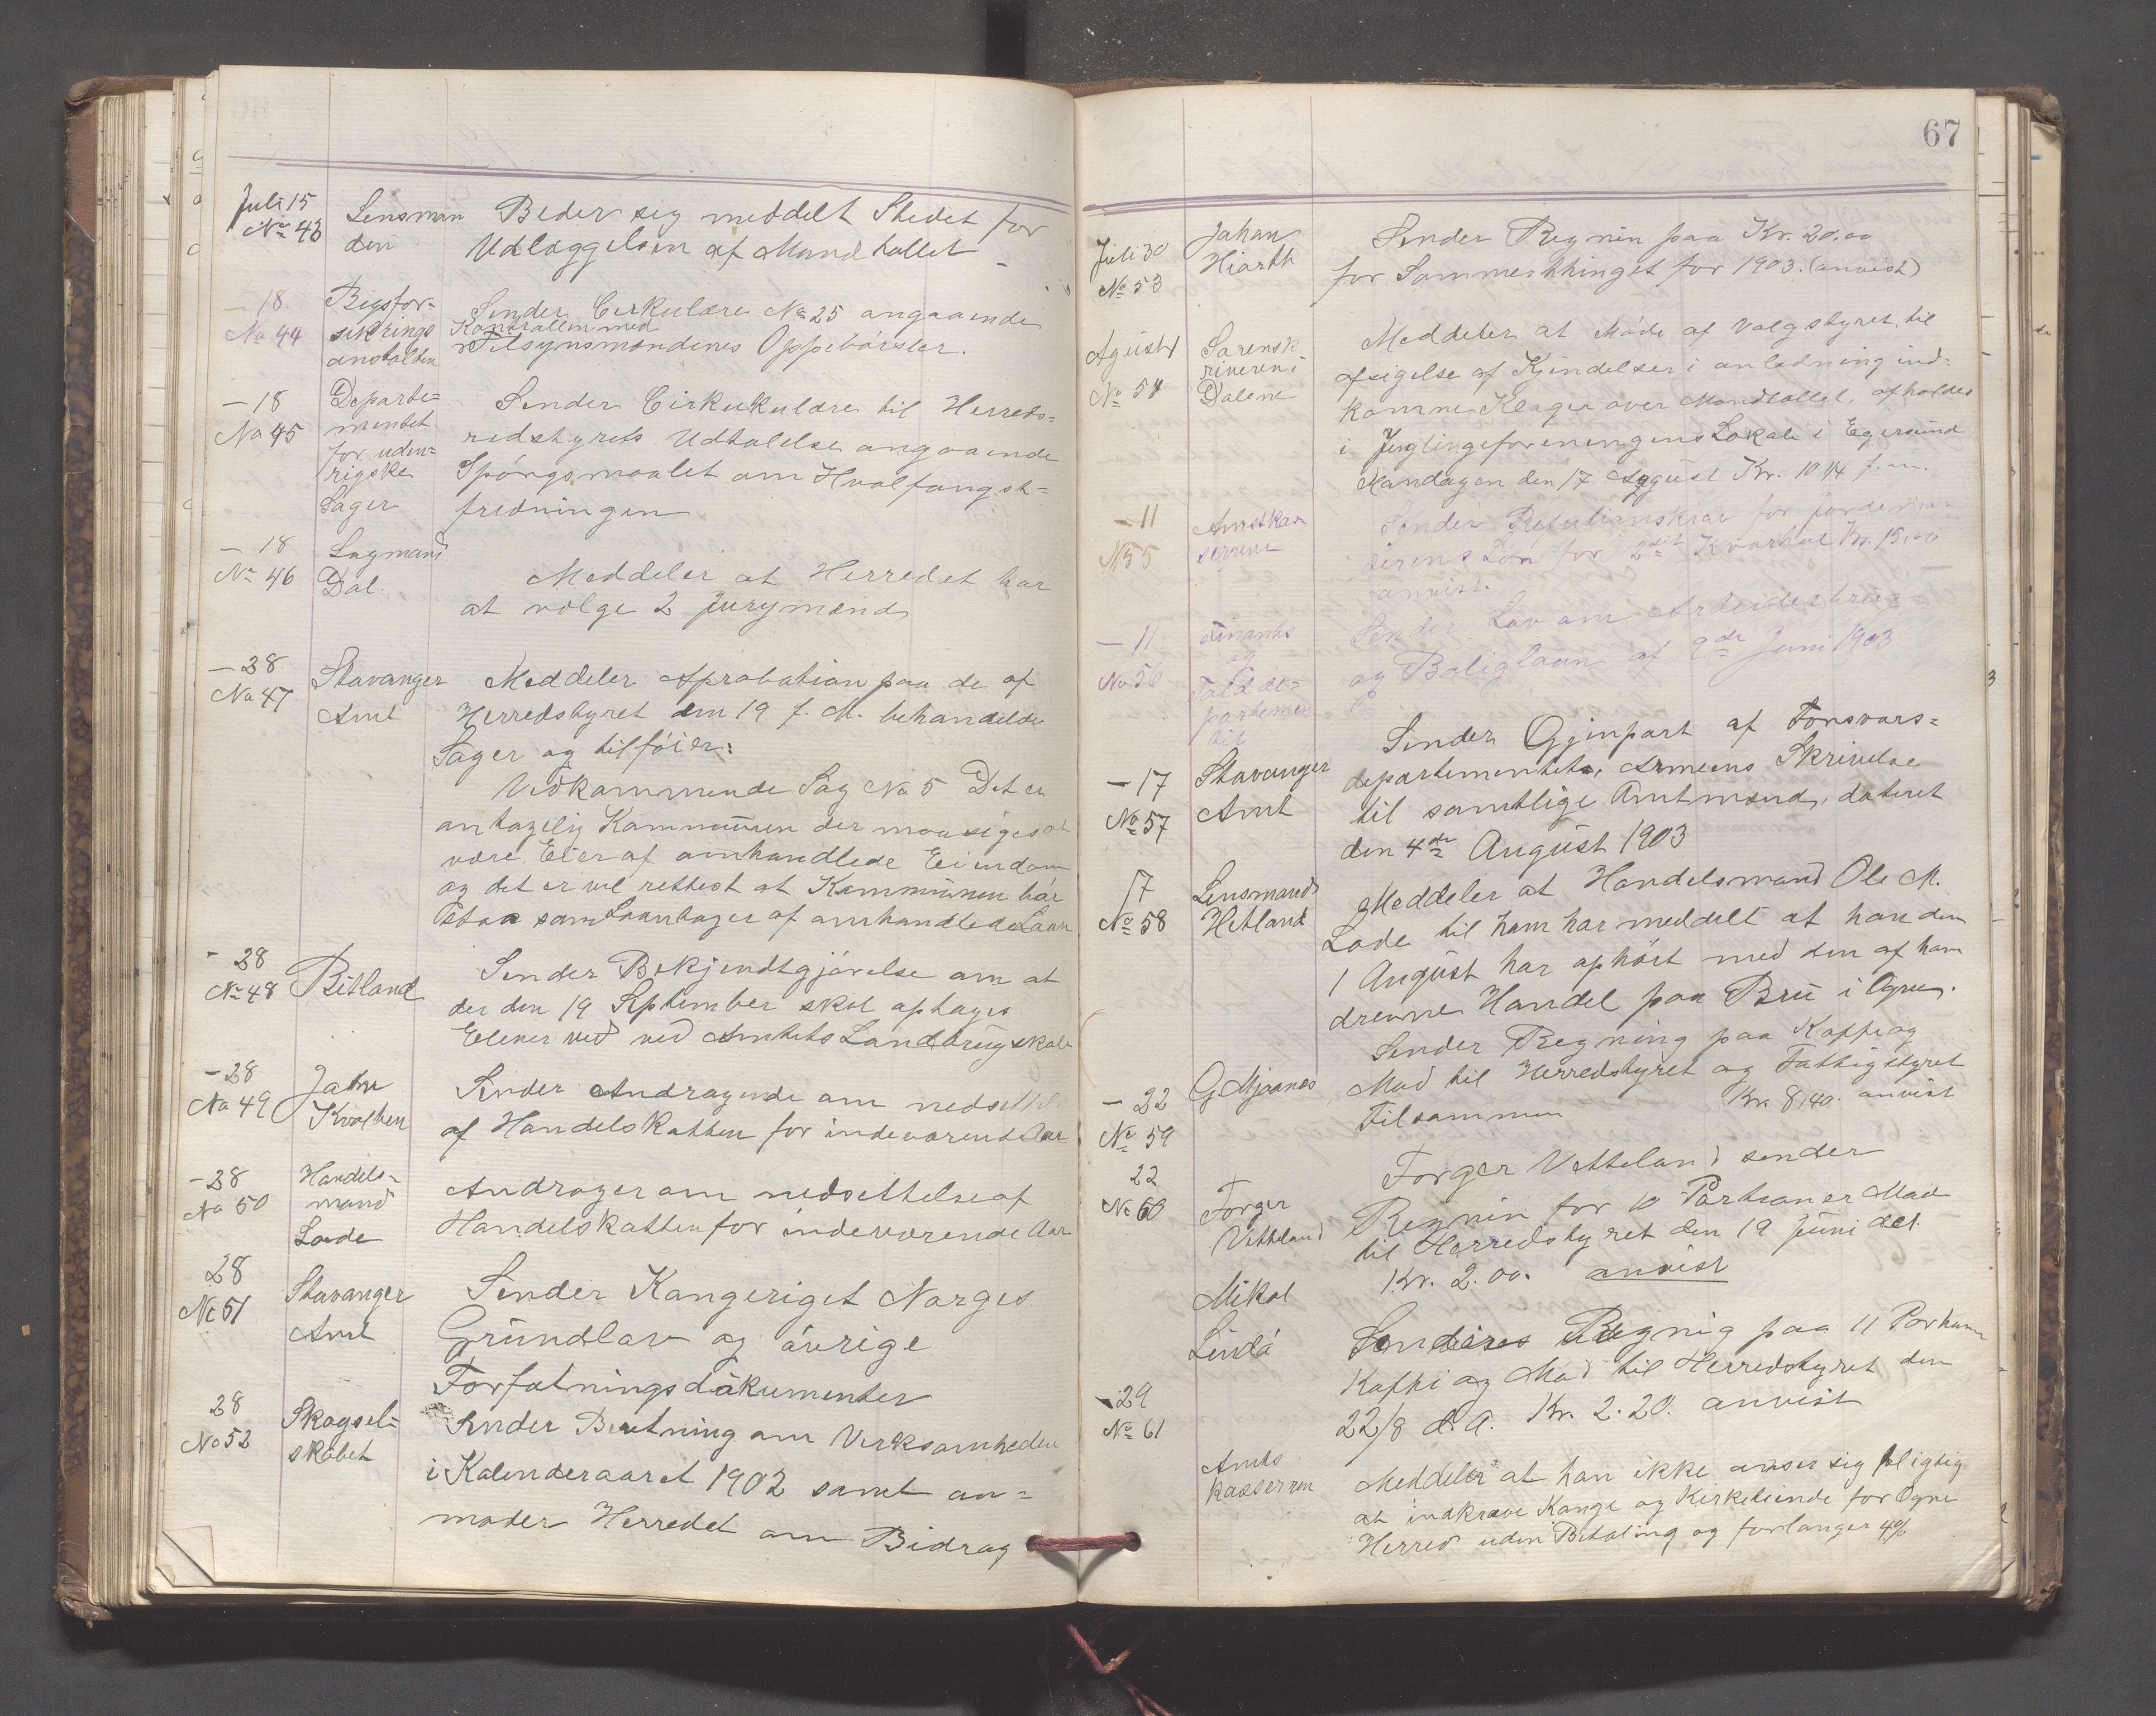 Juli 15 Lensman Beder sig meddelt Stedet for
No 43 den Udlæggelsen af Mandtallet
- 18 Rigsfor- Sender Cirkulære No 25 angaaende
No 44 sikrings Kontrollen med
anstalten Tilsynsmændenes Oppebørsler.
- 18 Departe- Sender Cirkukulære til Herreds-
No 45 mentet redstyrets Udtalelse angaaende
for uden- Spørgsmaalet om Hvalfangst-
rigske fredningen
Sager
- 18 Lagmand Meddeler at Herredet har
No 46 Dal. at vælge 2 Jurymænd
- 28 Stavanger Meddeler Aprobation paa de af
No 47 Amt Herredstyret den 19 f. M. behandelde
Sager og tilføier:
Vedkommende Sag No 5 Det er
antagelig Kommunen der maa siges at
være Eier af omhandlede Eiendom
og det er vel rettest at Kommunen bør
staa som Laantager af omhandlede Laan
- 28 Bitland Sender Bekjendtgjørelse om at
No 48 der den 19 September skal optages
Elever ved ved Amtets Landbrugskole
- 28 Sender Andragende om
No 49 Kvalben af Handelskatten for indeværende Aar
- 28 Handels- Andrager om nedsettelse af
No 50 mand Handelskatten for indeværende Aar
Lode
28 Stavanger Sender Kongeriget Norges
No 51 Amt Grundlov og øvrige
Forfatningsdokumenter
28 Skogsel- Sender Beretning om Virksomheden
No 52 skabet i Kalenderaaret 1902 samt an-
moder Herredet om Bidrag
67
Juli 30 Johan Sender Regnin paa Kr. 20.00
No 53 Hiorth for Sommerthinget for 1903. (anvist)
Agust Sorensk- Meddeler at Møde af Valgstyret til
No 54 riveren i afsigelse af Kjendelser i anledning ind-
Dalene komne Klager over Mandtallet, afholdes
i Ynglingeforeningens Lokale i Egersund
Mandagen den 17 August Kr. 10 1/4 f.m.
- 11 Amtskas- Sender
N 55 serren Løn for 2det Kvartal Kr. 15,00
anvist.
- 11 Finants Sender Lov om Arbeiderbrug
No 56 og og Boliglaan af 9de Juni 1903
Tolddepartementet
- 17 Stavanger Sender Gjenpart af Forsvars-
No 57 Amt departementets, Armeens Skrivelse
til samtlige Amtmænd, dateret
den 4de August 1903
17 Lensmand Meddeler at Handelsmand Ole M.
No 58 Hetland Lode til ham har meddelt at han den
1 August har ophört med den af ham
drevne Handel paa Bru i Ogne.
- 22 G Mjaanes Sender Regning paa Kaffe og
No 59 Mad til Herredstyret og Fattigstyret
Tilsammen Kr. 8,40. anvist
22 Torger Torger Vetteland sender
No 60 Vetteland Regnin for 10 Portioner Mad
til Herredstyret den 19 Juni det.
Kr. 2.00. anvist
Mikal
Lindö Sender Regnig paa 11 Portioner
- 29 Kaffe og Mad til Herredstyret den
No 61 22/8 d.A. Kr. 2.20. anvist
Amts Meddeler at han ikke anser sig pligtig
kasserren at indkræve Konge og Kirketiende for Ogne
Herred uden Betaling og forlanger 4%